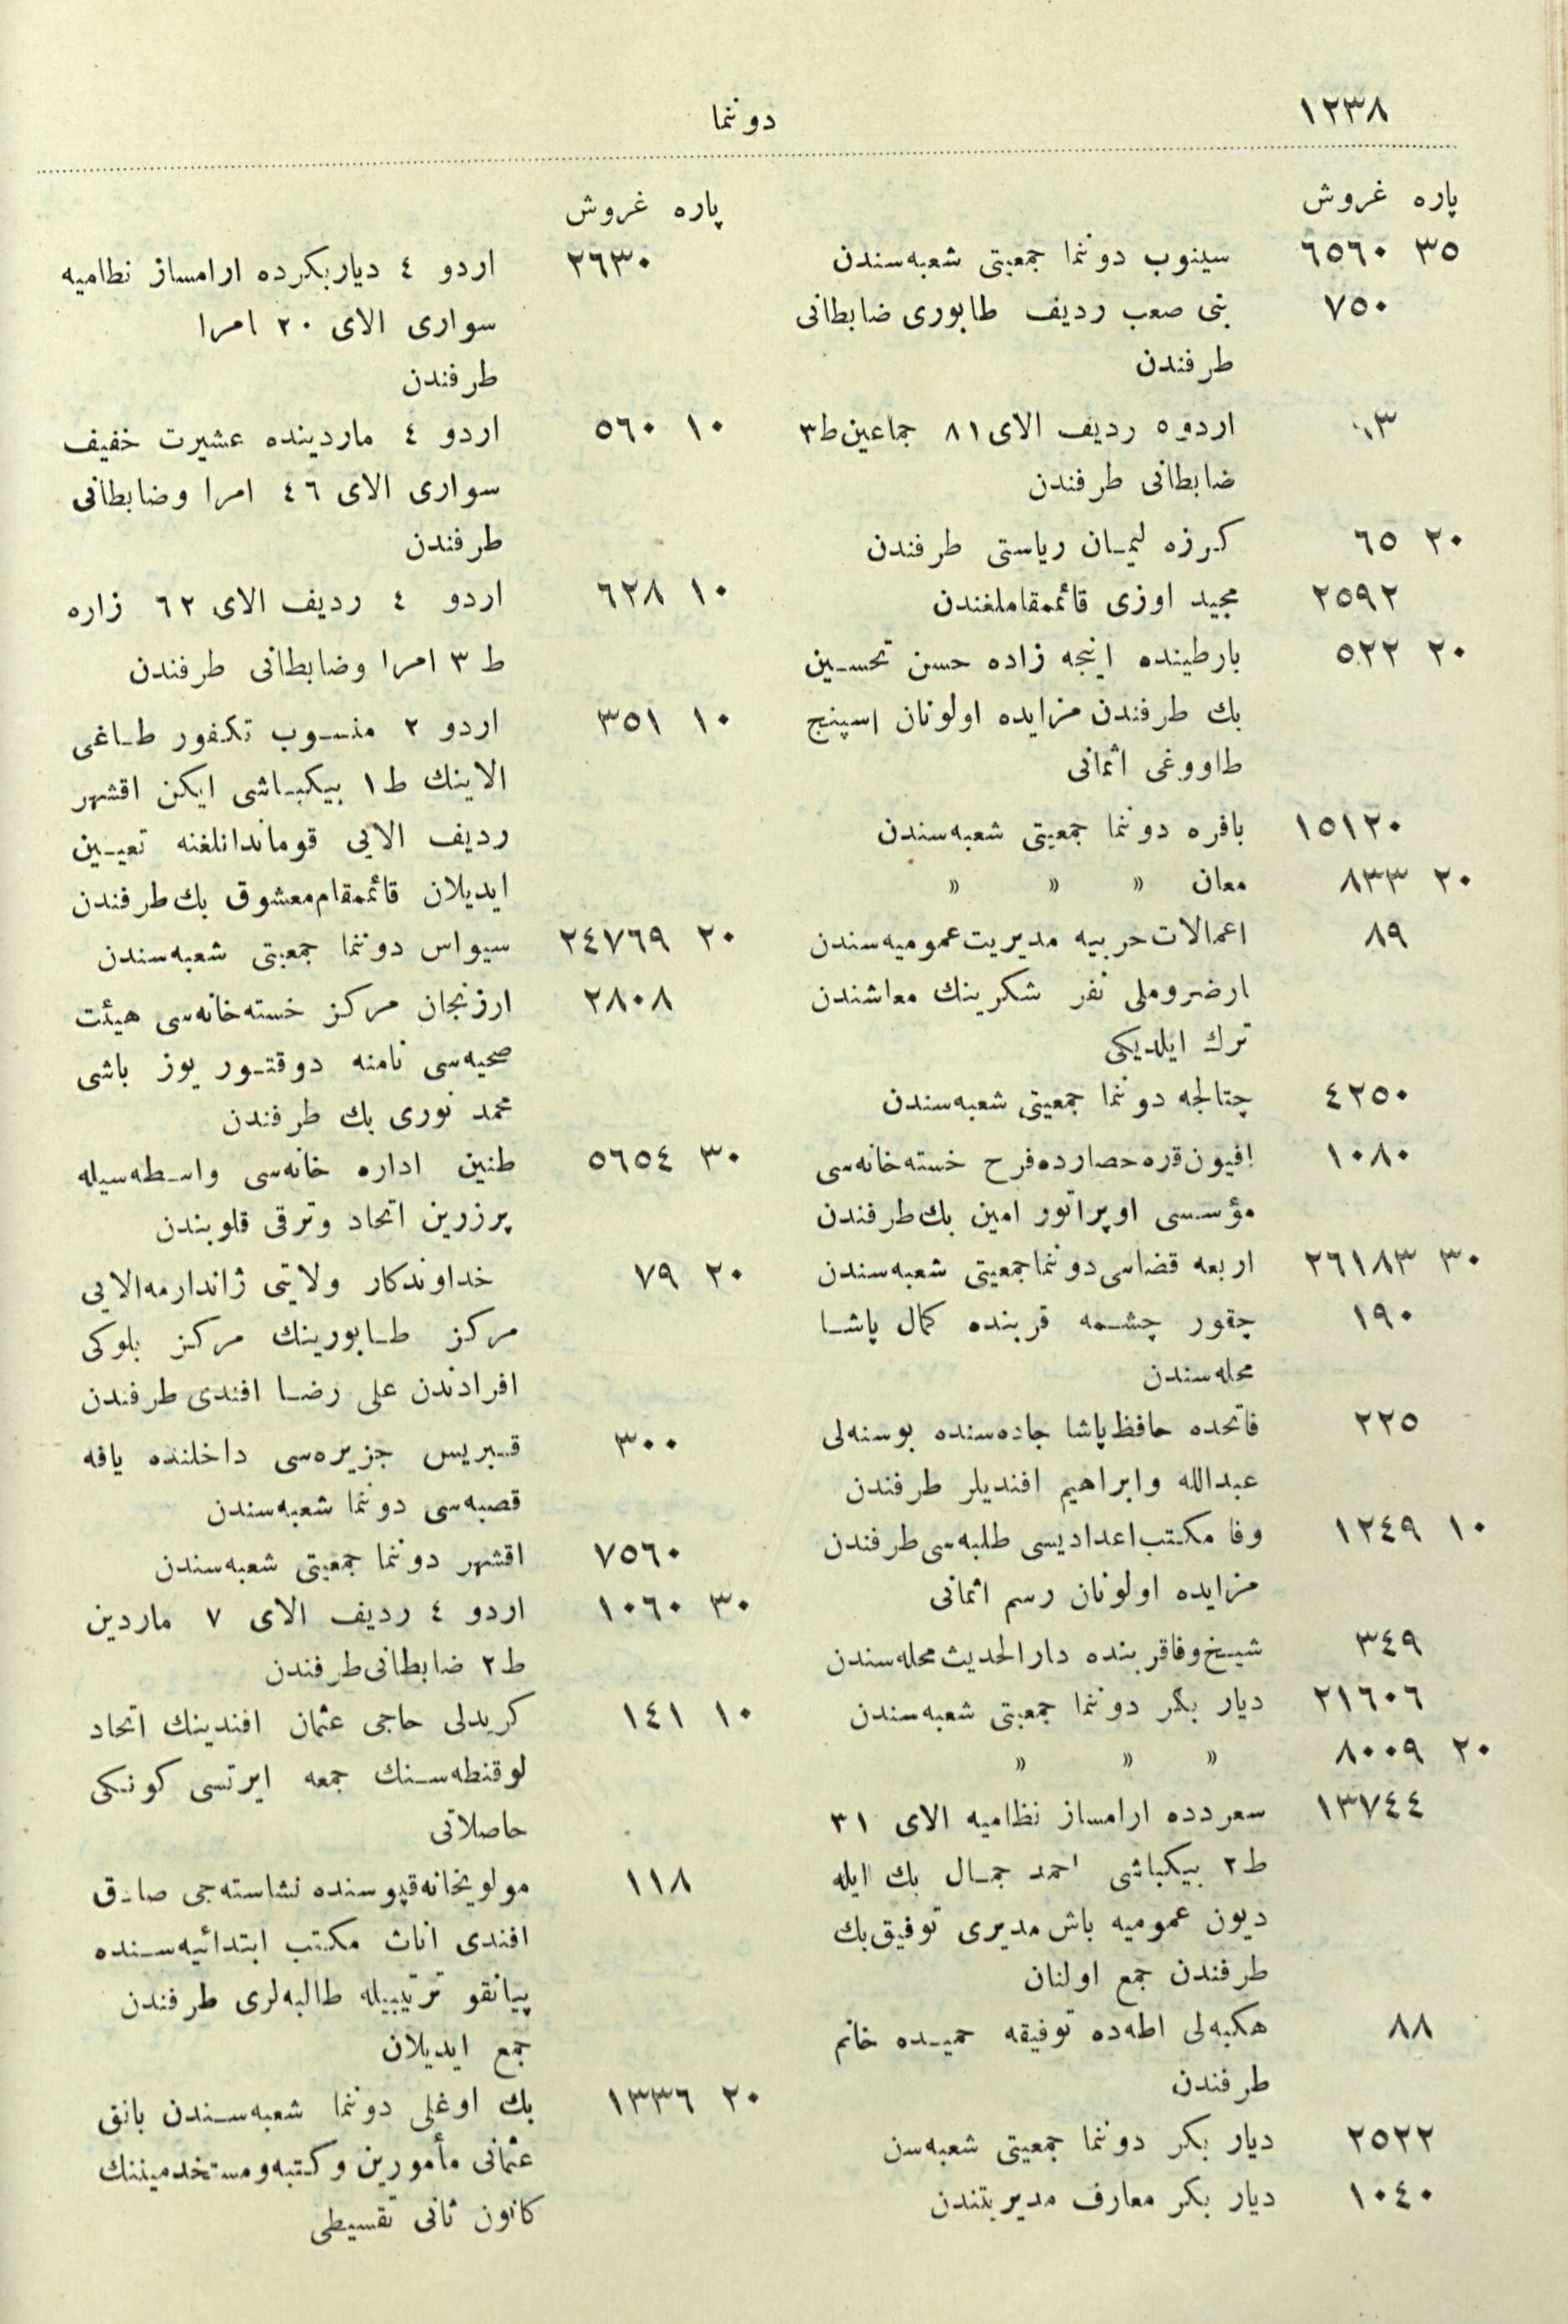 ١٢٣٨
دوننما
پاره غروش
٣٥ ٦٥٦٠ سينوب دوننما جمعيتى شعبه‌سندن
٧٥٠ بنى صعب رديف طابورى ضابطانى
طرفندن
اردو ٥ رديف الاى ٨١ جماعين ط ٣
ضابطانى طرفندن
٢٠ ٦٥ كرزه ليمان رياستى طرفندن
٢٥٩٢ مجيد اوزى قائممقاملغندن
٢٠ ٥٢٢ بارطينده اينجه زاده حسن تحسين
بك طرفندن مزايده اولونان اسپنج
طاووغى اثمانى
١٥١٢٠ بافره دوننما جمعيتى شعبه‌سندن
٢٠ ٨٣٣ معان » » »
٨٩ اعمالات حربيه مديريت عموميه‌سندن
ارضروملى نفر شكرينك معاشندن
ترك ايلديكى
٤٢٥٠ چتالجه دوننما جمعيتى شعبه‌سندن
١٠٨٠ افيون قره حصارده فرح خسته خانه‌سى
مؤسسى اوپراتور امين بك طرفندن
٣٠ ٢٦١٨٣ اربعه قضاسى دوننما جمعيتى شعبه‌سندن
١٩٠ چقور چشمه قربنده كمال پاشا
محله‌سندن
٢٢٥ فاتحده حافظ پاشا جاده‌سنده بوسنه‌لى
عبدالله وابراهيم افنديلر طرفندن
١٠ ١٢٤٩ وفا مكتب اعداديسى طلبه‌سى طرفندن
مزايده اولونان رسم اثمانى
٣٤٩ شيخ وفا قربنده دار الحديث محله‌سندن
٢١٦٠٦ ديار بكر دوننما جمعيتى شعبه‌سندن
٢٠ ٨٠٠٩ » » »
١٣٧٤٤ سعردده ارامساز نظاميه الاى ٣١
ط ٢ بيكباشى احمد جمال بك ايله
ديون عموميه باش مديرى توفيق بك
طرفندن جمع اولنان
٨٨ هكبه‌لى اطه‌ده توفيقه حميده خانم
طرفندن
٢٥٢٢ ديار بكر دوننما جمعيتى شعبه‌سن
١٠٤٠ ديار بكر معارف مديريتندن
پاره غروش
٢٦٣٠ اردو ٤ دياربكرده ارامساز نظاميه
سوارى الاى ٢٠ امرا
طرفندن
١٠ ٥٦٠ اردو ٤ ماردينده عشيرت خفيف
سوارى الاى ٤٦ امرا وضابطانى
طرفندن
١٠ ٦٢٨ اردو ٤ رديف الاى ٦٢ زاره
ط ٣ امرا وضابطانى طرفندن
١٠ ٣٥١ اردو ٢ منسوب تكفور طاغى
الاينك ط ١ بيكباشى ايكن اقشهر
رديف الايى قومانداнلغنه تعيين
ايديلان قائممقام معشوق بك طرفندن
٢٠ ٢٤٧٦٩ سيواس دوننما جمعيتى شعبه‌سندن
٢٨٠٨ ارزنجان مركز خسته خانه‌سى هيئت
صحيه‌سى نامنه دوقتور يوز باشى
محمد نورى بك طرفندن
٣٠ ٥٦٥٤ طنين اداره خانه‌سى واسطه‌سيله
پرزرين اتحاد وترقى قلوبندن
٢٠ ٧٩ خداوندكار ولايتى ژاندارمه الايى
مركز طابورينك مركز بلوكى
افرادندن على رضا افندى طرفندن
٣٠٠ قبريس جزيره‌سى داخلنده يافه
قصبه‌سى دوننما شعبه‌سندن
٧٥٦٠ اقشهر دوننما جمعيتى شعبه‌سندن
٣٠ ١٠٦٠ اردو ٤ رديف الاى ٧ ماردين
ط ٢ ضابطانى طرفندن
١٠ ١٤١ كريدلى حاجى عثمان افندينك اتحاد
لوقنطه‌سنك جمعه ايرتسى كونكى
حاصلاتى
١١٨ مولويخانه قپوسنده نشاسته‌جى صادق
افندى اناث مكتب ابتدائيه‌سنده
پيانقو ترتيبيله طالبه‌لرى طرفندن
جمع ايديلان
٢٠ ١٣٣٦ بك اوغلى دوننما شعبه‌سندن بانق
عثمانى مأمورين وكتبه ومستخدميننك
كانون ثانى تقسيطى